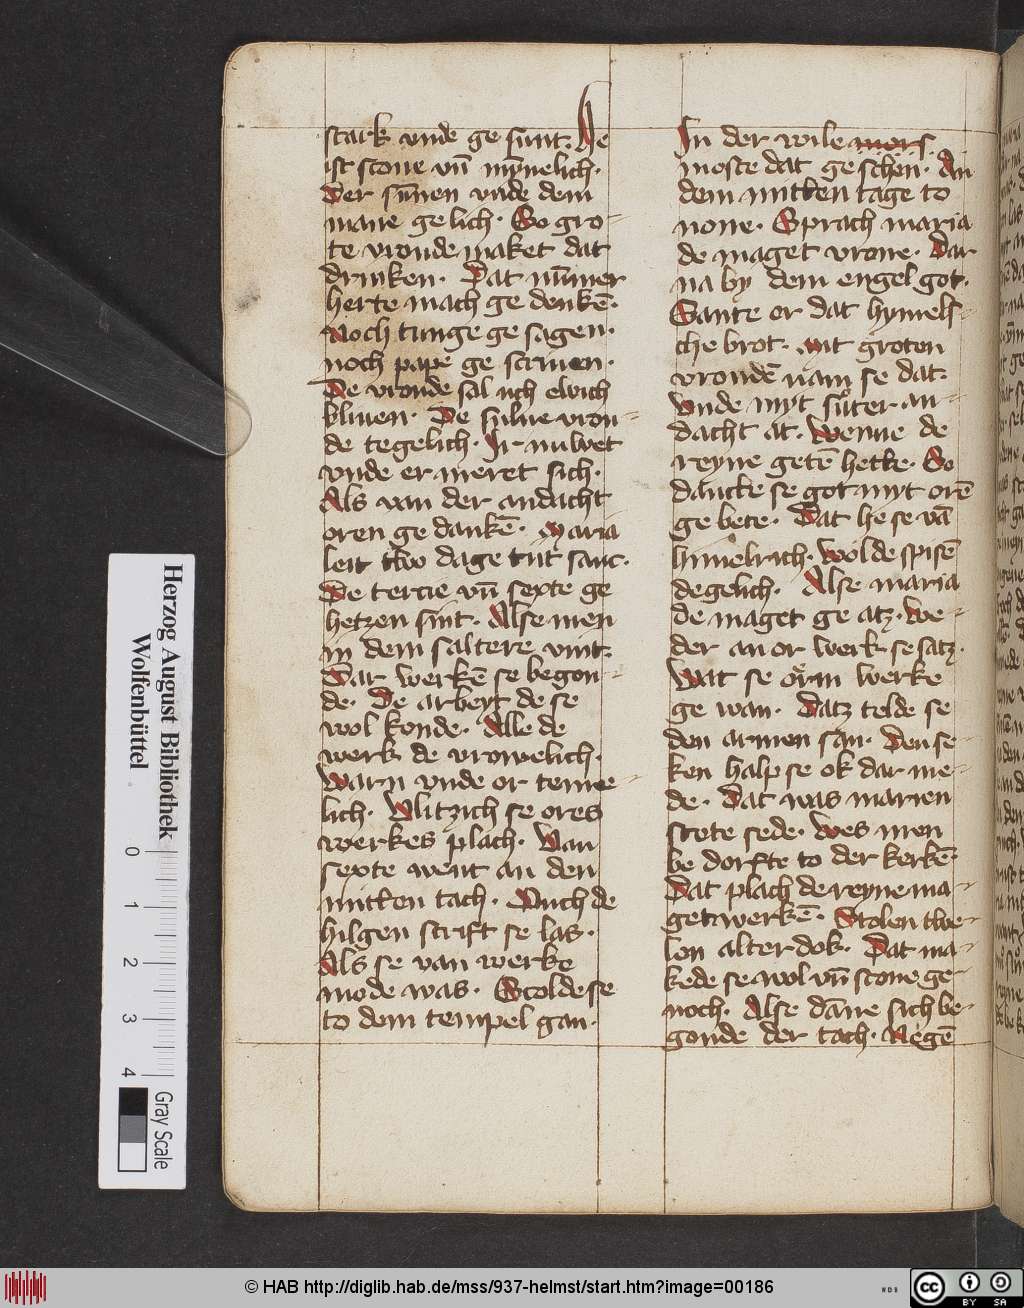 stark vnde ge sunt. De
ist scone vn̄ mȳnelich.
Der sūnen vnde dem
mane ge lich. So gro-
te vronde maket dat
drinken. Dat nūmer
herte mach ge denkē.
Noch tunge ge sagen.
noch pape ge scriuen.
De vronde sal uch elwich
bliuen. De sulue vron-
de tegelich. Ir nuwet
vnde er meret sich.
Als van der andacht
oren ge dankē. Maria
leit two dage tijt sanc.
De tercie vn̄ sexte ge
hetzen sint. Alse men
in dem saltere vint.
Dar werkē se begon-
de. De arbeyt de se
wol konde. Alle de
werk de vrowelich.
Warn vnde or teme-
lich. Vlitzich se ores
werkes plach. Van
sexte went an den
mitten tach. Duch de
hilgen scrift se las.
Als se van werke
mode was. Scolde se
to dem tempel gan.
In der wile
moste dat ge schēn. An
dem mitten tage to
none. Sprach maria
de maget vrone. Dar
na by dem engel got.
Sante er dat hymels-
che brot. mit groten
vrondē nam se dat.
Vnde myt suter an-
dacht at. Wenne de
reyne getē hetke. So
dancke se got myt orē
ge bete. Dat he se vā
himelrich. Wolde spisē
degelich. Alse maria
de maget ge atz. We-
der an or werk se satz.
Wat se orm werke
ge wan. Datz telde se
den armen san. Den se-
ken halp se ok dar me-
de. Dat was marien
stete sede. Wes men
be dorfte to der kerkē.
Dat plach de reyne ma-
get werkē. Stolen twe-
len alter dok. Dat ma-
kede se wol vn̄ scone ge-
noch. Alse dāne sich be-
gonde der tach. Negē
Herzog August Bibliothek
Wolfenbüttel
0 1 2 3 4
Gray Scale
© HAB http://diglib.hab.de/mss/937-helmst/start.htm?image=00186
WDB
CC BY SA